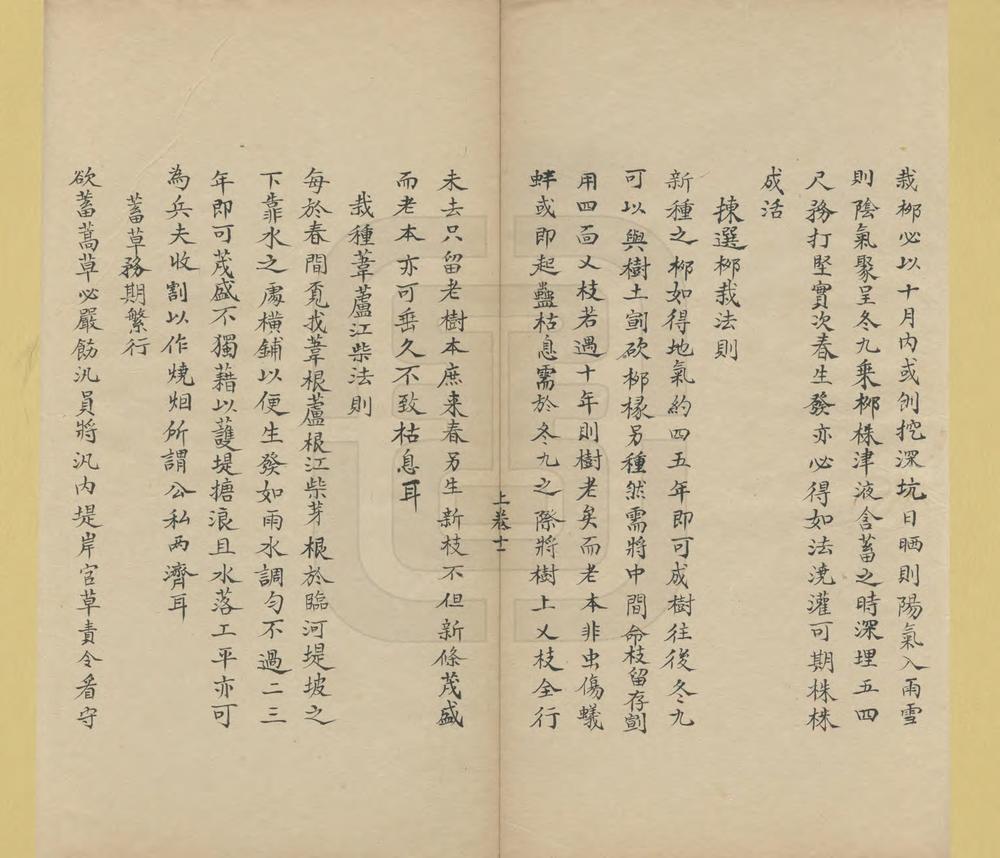 栽栁必以十月內或刨挖深坑日晒則陽氣入雨雪
則陰氣聚呈冬九乘栁株津液含蓄之時深埋五四
尺務打堅實次春生發亦必得如法澆灌可期株株
成活
揀選栁栽法則
新種之栁如得地氣約四五年即可成樹往後冬九
可以與樹土劊砍栁椽另種然需將中間命枝留存劊
用四面乂枝若遇十年則樹老矣而老本非虫傷蟻
蛘或即起蠱枯息需於冬九之際將樹上乂枝全行
上卷十一
未去只留老樹本庶来春另生新枝不但新條茂盛
而老本亦可垂久不致枯息耳
栽種葦蘆江柴法則
每於春間覔找葦根蘆根江柴芽根於臨河堤坡之
下靠水之處橫鋪以便生發如雨水調勻不過二三
年即可茂盛不獨藉以護堤搪浪且水落工平亦可
為兵夫收割以作燒烟所謂公私兩濟耳
蓄草務期繁行
欲蓄蒿草必嚴飭汛員將汛內堤岸官草責令看守